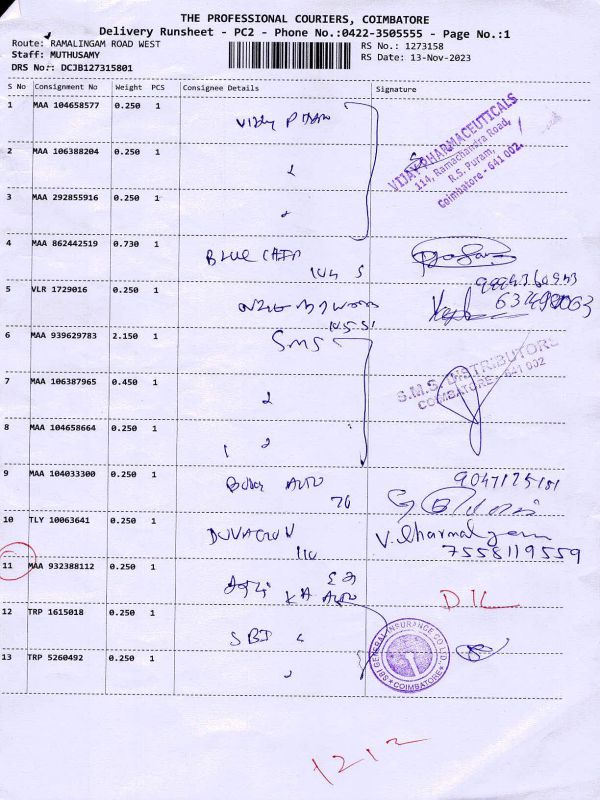 THE PROFESSIONAL COURIERS, COIMBATORE
Delivery Runsheet - PC2 - Phone No.:0422-3505555 - Page No.:1
Route: RAMALINGAM ROAD WEST
RS No.: 1273158
Staff: MUTHUSAMY
RS Date: 13-Nov-2023
DRS No:: DCJB127315801
S No Consignment No Weight PCS Consignee Details Signature
1 MAA 104658577 0.250 1
VIJAY PHARMACEUTICALS
114, Ramachandra Road,
R.S. Puram,
Coimbatore - 641 002.
2 MAA 106388204 0.250 1
3 MAA 292855916 0.250 1
4 MAA 862442519 0.730 1
BLUE CHIP
5 VLR 1729016 0.250 1
6 MAA 939629783 2.150 1 SMS
S.M.S. DISTRIBUTORS
COIMBATORE - 641 002
7 MAA 106387965 0.450 1
8 MAA 104658664 0.250 1
9 MAA 104033300 0.250 1 AUTO
9047125181
10 TLY 10063641 0.250 1
V. Dharmalingam
7558119559
11 MAA 932388112 0.250 1
KA AUTO
D/L
12 TRP 1615018 0.250 1
SBI
SBI GENERAL INSURANCE CO LTD.
COIMBATORE
13 TRP 5260492 0.250 1
1212